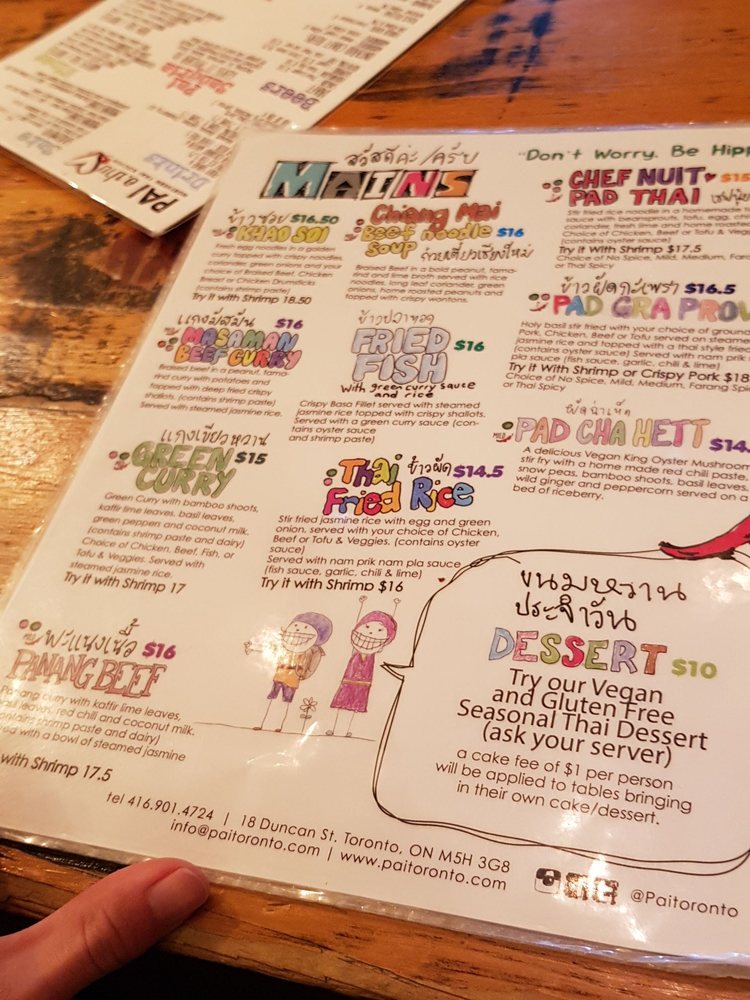 Beers
Drinks
PAI
สวัสดีค่ะ/ครับ
MAINS
"Don't Worry. Be Hipp
ข้าวซอย $16.50
KHAO SOI
Fresh egg noodles in a golden
curry topped with crispy noodles,
coriander, green onions and your
choice of Braised Beef, Chicken
Breast or Chicken Drumsticks
(contains shrimp paste)
Try it with Shrimp 18.50
แกงมัสมั่น $16
MASSAMAN
BEEF CURRY
Braised beef in a peanut, tama-
rind curry with potatoes and
topped with deep fried crispy
shallots. (contains shrimp paste)
Served with steamed jasmine rice.
แกงเขียวหวาน
GREEN $15
CURRY
Green Curry with bamboo shoots,
kaffir lime leaves, basil leaves,
green peppers and coconut milk.
(contains shrimp paste and dairy)
Choice of Chicken, Beef, Fish, or
Tofu & Veggies. Served with
steamed jasmine rice.
Try it with Shrimp 17
พะแนงเนื้อ $16
PANANG BEEF
Panang curry with kaffir lime leaves,
basil leaves, red chili and coconut milk.
(contains shrimp paste and dairy)
ved with a bowl of steamed jasmine
with Shrimp 17.5
Chiang Mai
Beef noodle $16
Soup
ก๋วยเตี๋ยวเชียงใหม่
Braised Beef in a bold peanut, tama-
rind and lime broth served with rice
noodles, long leaf coriander, green
onions, home roasted peanuts and
topped with crispy wontons.
ข้าวปลาทอด
FRIED $16
FISH
with green curry sauce
and rice
Crispy Basa Fillet served with steamed
jasmine rice topped with crispy shallots.
Served with a green curry sauce (con-
tains oyster sauce
and shrimp paste)
Thai ข้าวผัด $14.5
Fried Rice
Stir fried jasmine rice with egg and green
onion, served with your choice of Chicken,
Beef or Tofu & Veggies. (contains oyster
sauce)
Served with nam prik nam pla sauce
(fish sauce, garlic, chili & lime)
Try it with Shrimp $16
CHEF NUIT $15
PAD THAI
Stir fried rice noodle in a homemade t
sauce with beansprouts, tofu, egg, ch
coriander, fresh lime and home roasted
Choice of Chicken, Beef or Tofu & Veg
(contains oyster sauce)
Try it with Shrimp $17.5
Choice of No Spice, Mild, Medium, Fa
or Thai Spicy
ข้าวผัดกะเพรา $16.5
PAD GRA PROW
Holy basil stir fried with your choice of groun
Pork, Chicken, Beef or Tofu served on steame
jasmine rice and topped with a thai style fried
(contains oyster sauce) Served with nam prik n
pla sauce (fish sauce, garlic, chili & lime)
Try it With Shrimp or Crispy Pork $18
Choice of No Spice, Mild, Medium, Farang Sp
or Thai Spicy
ผัดฉ่าเห็ด
MILD PAD CHA HETT $14.
A delicious Vegan King Oyster Mushroom
stir fry with a home made red chili paste,
snow peas, bamboo shoots, basil leaves,
wild ginger and peppercorn served on a
bed of riceberry.
ขนมหวาน
ประจำวัน
DESSERT $10
Try our Vegan
and Gluten Free
Seasonal Thai Dessert
(ask your server)
a cake fee of $1 per person
will be applied to tables bringing
in their own cake/dessert.
tel 416.901.4724 | 18 Duncan St. Toronto, ON M5H 3G8
info@paitoronto.com | www.paitoronto.com
@Paitoronto